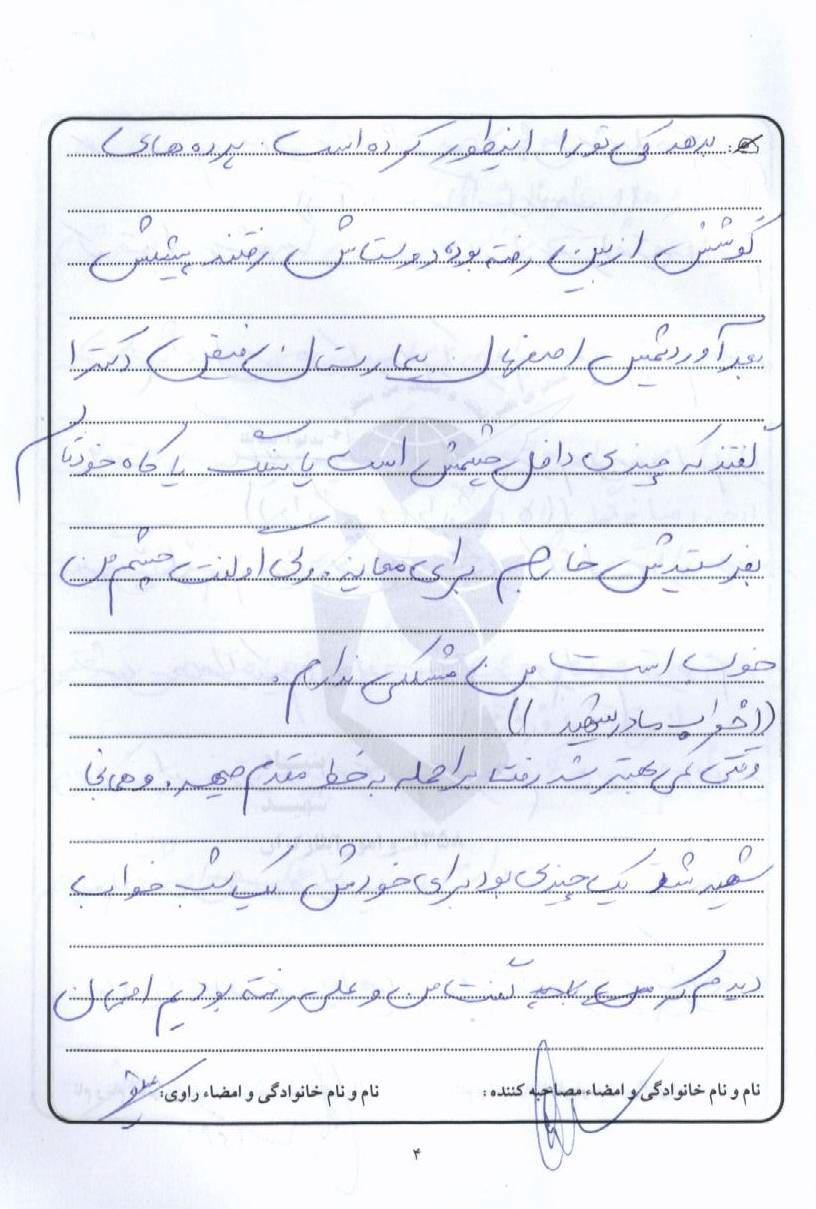 بدهد کی تو را اینطور کرده است. پرده های
گوشش از بین رفته بود دوستاش رفتند پیشش
بعد آوردنمش اصفهان بیمارستان فیض دکترا
گفتند که چیزی داخل چشمش است یا سنگ یا کاه خودتان
بفرستیدش خارج برای معاینه. ولی او گفت چشم من
خوب است من مشکلی ندارم.
((خواب مادر شهید))
وقتی کمی بهتر شد رفت برا حمله به خط مقدم جبهه. و همانجا
شهید شد یک چیزی بود برای خودش یک شب خواب
دیدم که گفت من و علی رفته بودیم امتحان
نام و نام خانوادگی و امضاء مصاحبه کننده :
نام و نام خانوادگی و امضاء راوی:
۴